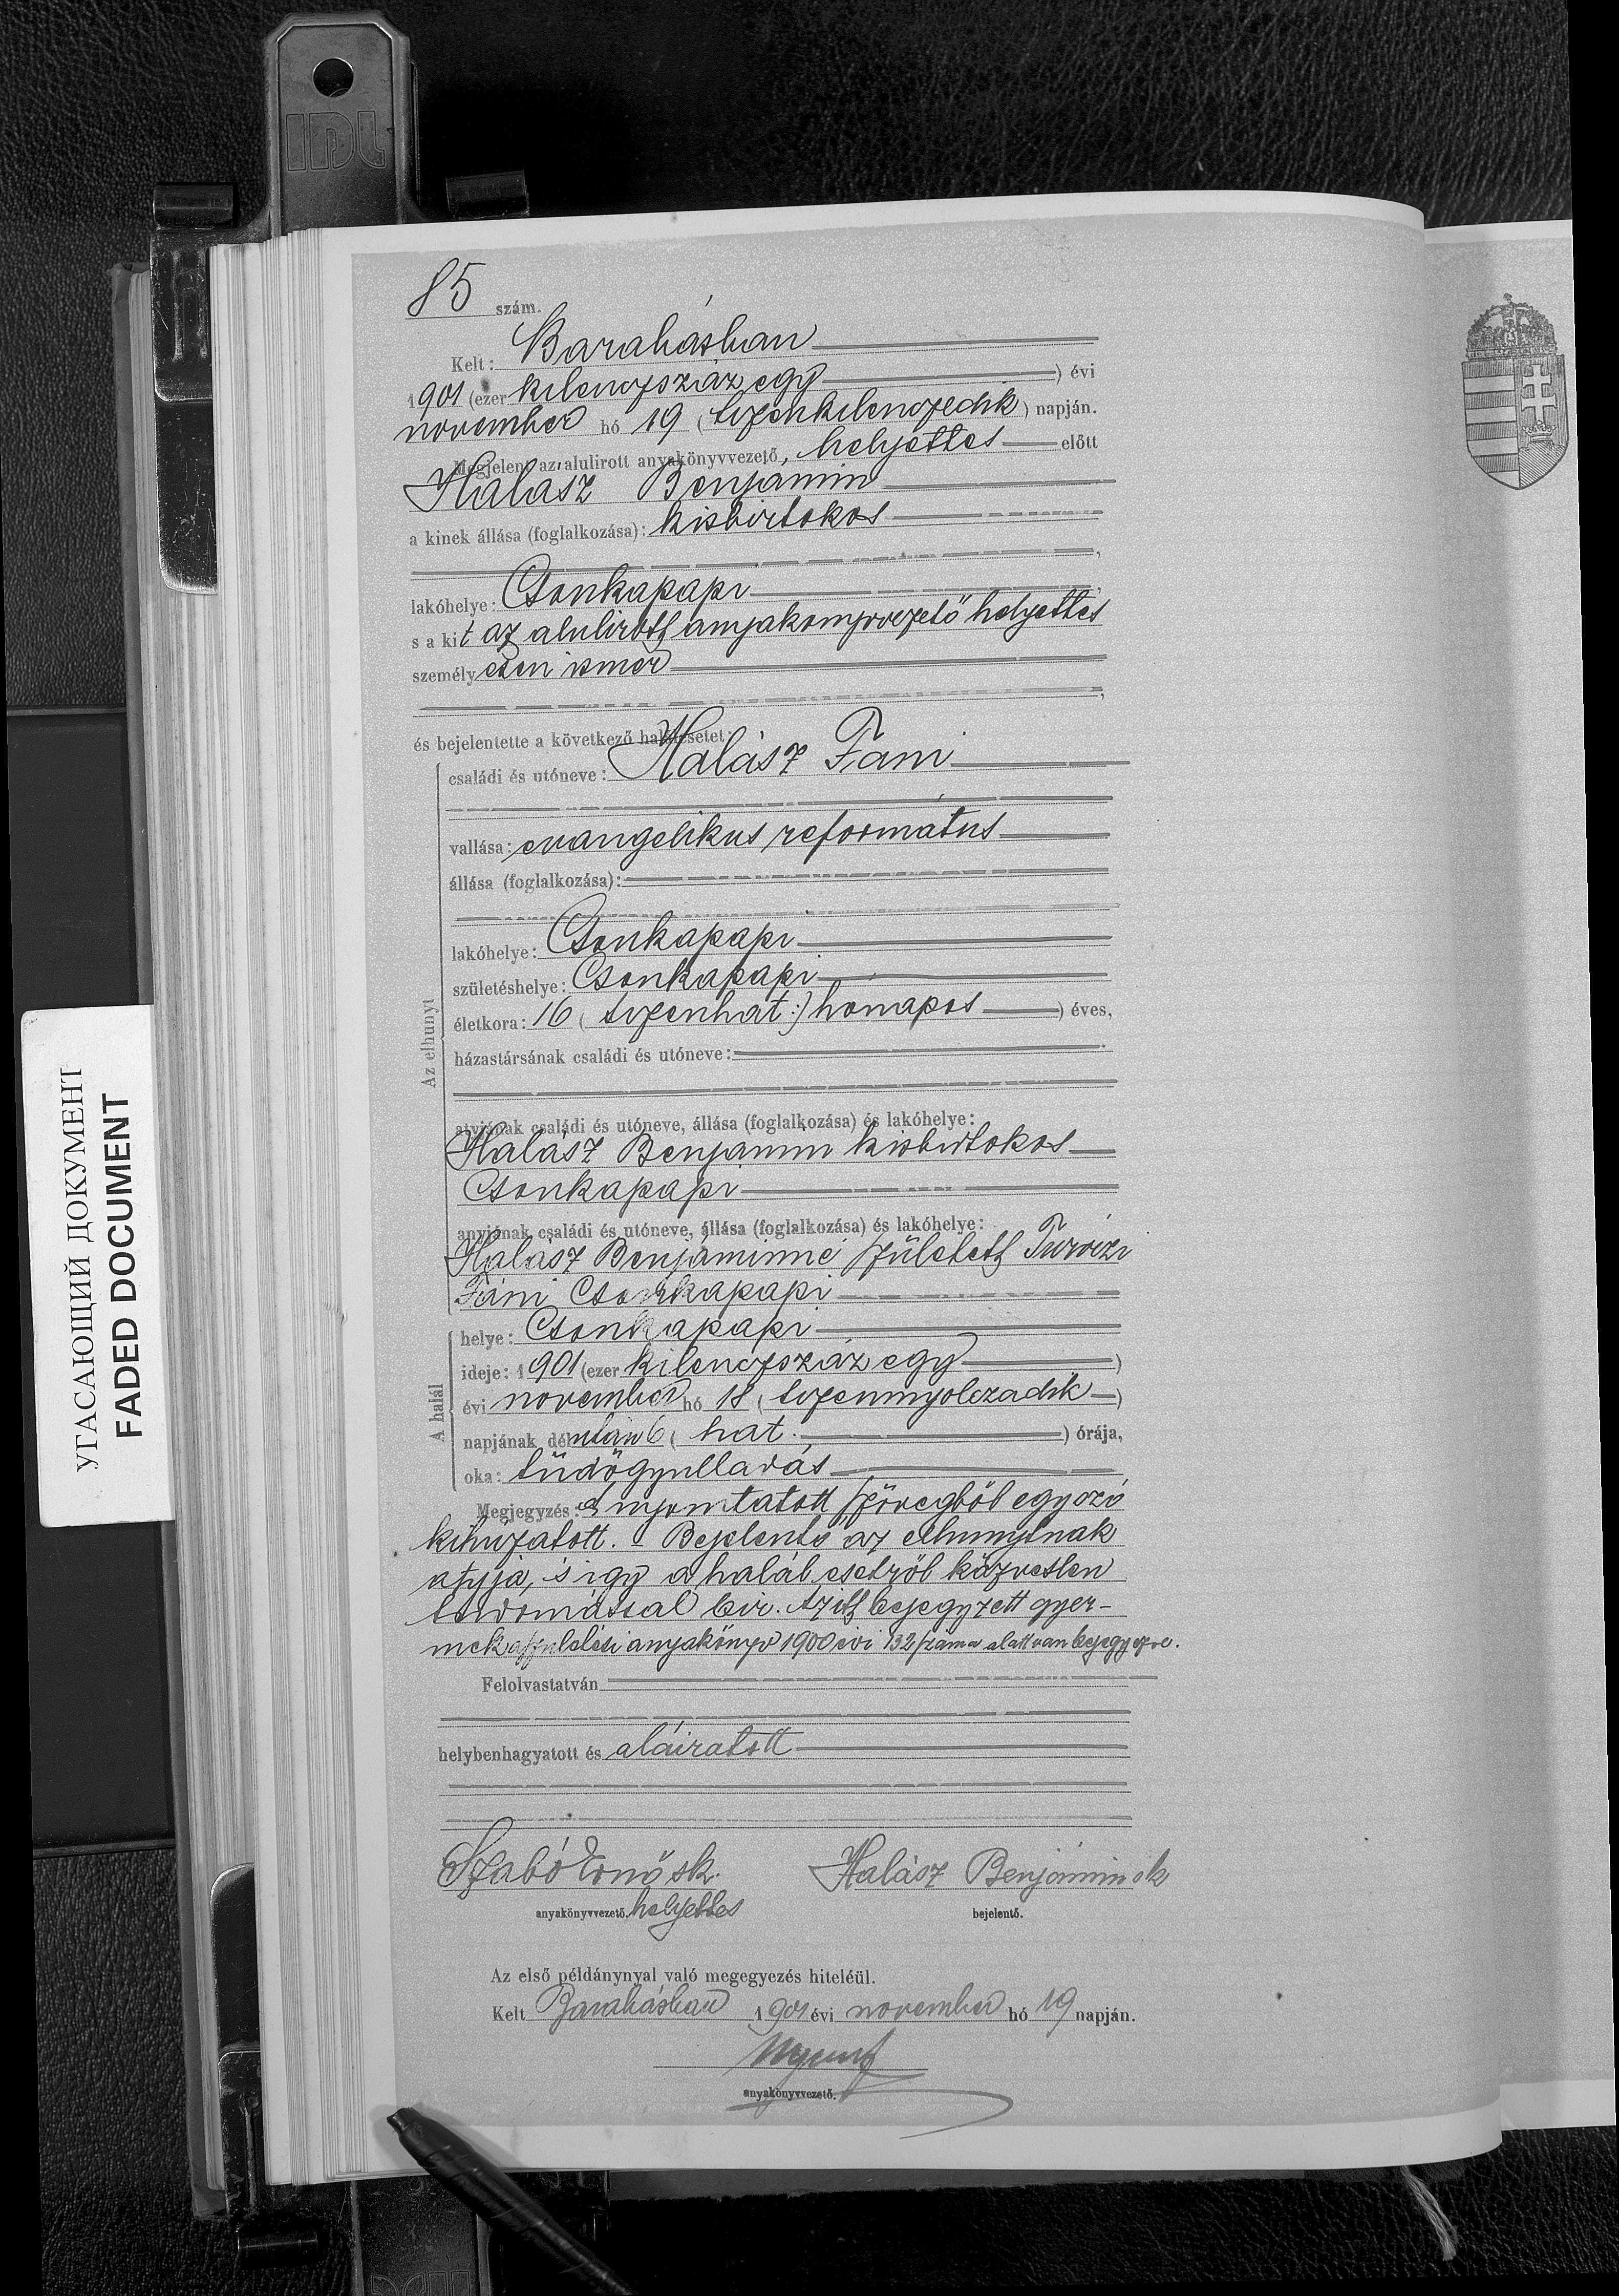 85 szám.
Kelt: Barabásban
1901 (ezer kilenczszáz egy ) évi
november hó 19 ( tizenkilenczedik ) napján.
Megjelent az alulirott anyakönyvvezető, helyettes előtt
Halász Benjámin
a kinek állása (foglalkozása): kisbirtokos
lakóhelye: Csonkapapi
s a kit az alulirott anyakönyvvezető helyettes
személyesen ismer
és bejelentette a következő halálesetet:
Az elhunyt
családi és utóneve: Halász Fáni
vallása: evangelikus református
állása (foglalkozása):
lakóhelye: Csonkapapi
születéshelye: Csonkapapi
életkora: 16 ( tizenhat :) hónapos ) éves,
házastársának családi és utóneve:
atyjának családi és utóneve, állása (foglalkozása) és lakóhelye:
Halász Benjamin kisbirtokos
Csonkapapi
anyjának családi és utóneve, állása (foglalkozása) és lakóhelye:
Halász Benjáminné született
Fáni Csonkapapi
A halál
helye: Csonkapapi
ideje: 1901 (ezer kilenczszáz egy )
évi november hó 18 ( tizennyolczadik )
napjának délután 6 ( hat. ) órája,
oka: tüdőgyulladás
Megjegyzés: A nyomtatott szövegből egy szó
kihúzatott. – Bejelentő az elhunytnak
atyja, s így a halál esetről közvetlen
tudomással bir. Az itt bejegyzett gyer-
mek a születési anyakönyv 1900 évi 132 száma alatt van bejegyezve.
Felolvastatván
helybenhagyatott és aláiratott
Szabó Ernő sk. Halász Benjámin sk
anyakönyvvezető. helyettes bejelentő.
Az első példánynyal való megegyezés hiteléül.
Kelt Barabásban 1901 évi november hó 19 napján.
anyakönyvvezető.
УГАСАЮЩИЙ ДОКУМЕНТ
FADED DOCUMENT
IDL